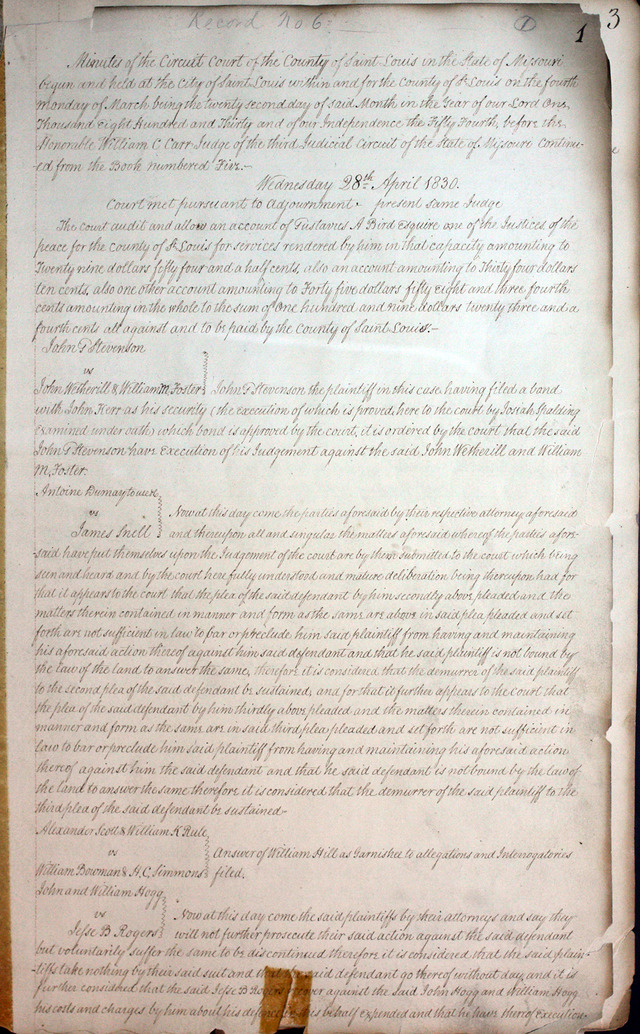 Record No 6.
1
1 3
Minutes of the Circuit Court of the County of Saint Louis in the State of Missouri
begun and held at the City of Saint Louis within and for the County of St Louis on the fourth
monday of March being the twenty second day of said Month in the Year of our Lord One
Thousand Eight Hundred and Thirty and of our Independence the Fifty Fourth, before the
Honorable William C Carr Judge of the third Judicial Circuit of the State of Missouri Continu-
-ed from the Book numbered Five.-
Wednesday 28th April 1830.
Court met pursuant to adjournment - present same Judge
The court audit and allow an account of Gustavus A Bird Esquire one of the Justices of the
peace for the county of St Louis for services rendered by him in that capacity amounting to
Twenty nine dollars fifty four and a half cents, also an account amounting to Thirty four dollars
ten cents, also one other account amounting to Forty five dollars fifty eight and three fourth
cents amounting in the whole to the sum of One hundred and nine dollars twenty three and a
fourth cents all against and to be paid by the County of Saint Louis.-
John P Stevenson
vs
John Wetherill & William M Foster John P Stevenson the plaintiff in this case having filed a bond
with John Kerr as his security (the execution of which is proved, here to the court by Josiah Spalding
examined under oath) which bond is approved by the court, it is ordered by the court that the said
John P Stevenson have Execution of his Judgement against the said John Wetherill and William
M, Foster.
Antoine Dumaytaux
vs Now at this day come the parties aforesaid by their respective attorney aforesaid
James Snell and thereupon all and singular the matters aforesaid whereof the parties afor-
said have put themselves upon the Judgement of the court are by them submitted to the court which being
seen and heard and by the court here fully understood and mature deliberation being thereupon had for
that it appears to the court that the plea of the said defendant by him secondly above pleaded and the
matters therein contained in manner and form as the same are above in said plea pleaded and set
forth are not sufficient in law to bar or preclude him said plaintiff from having and maintaining
his aforesaid action thereof against him said defendant and that he said plaintiff is not bound by
the law of the land to answer the same, therefore it is considered that the demurrer of the said plaintiff
to the second plea of the said defendant be sustained, and for that it further appears to the Court that
the plea of the said defendant by him thirdly above pleaded and the matters therein contained in
manner and form as the same are in said third plea pleaded and set forth are not sufficient in
law to bar or preclude him said plaintiff from having and maintaining his aforesaid action
thereof against him the said defendant and that he said defendant is not bound by the law of
the land to answer the same therefore it is considered that the demurrer of the said plaintiff to the
third plea of the said defendant be sustained-
Alexander Scott & William K Rule
vs Answer of William Hill as Garnishee to allegations and Interrogatories
William Bowman & H. C. Simmons filed.
John and William Hogg
vs Now at this day come the said plaintiffs by their attorneys and say they
Jesse B Rogers will not further prosecute their said action against the said defendant
but voluntarily suffer the same to be discontinued therefore it is considered that the said plain-
-tiffs take nothing by their said suit and that the said defendant go thereof without day, and it is
further considered that the said Jesse B Rogers recover against the said John Hogg and William Hogg
his costs and charges by him about his defence in this behalf expended and that he have thereof execution